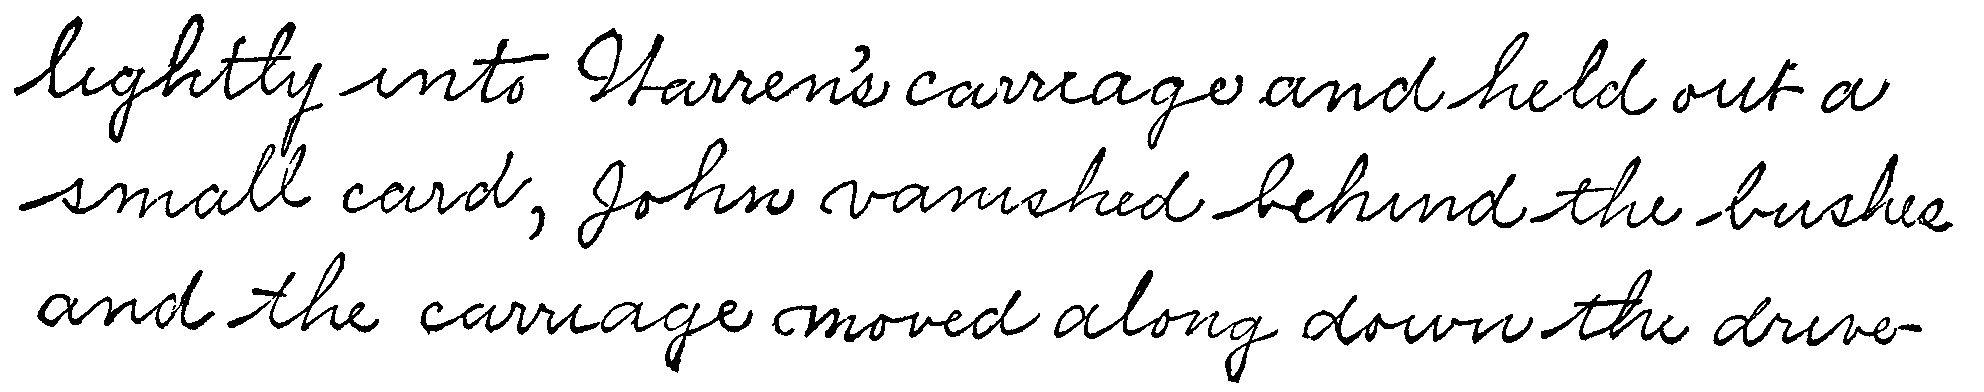 lightly into Warren's carriage and held out a
small card, John vanished behind the bushes
and the carriage moved along down the drive-